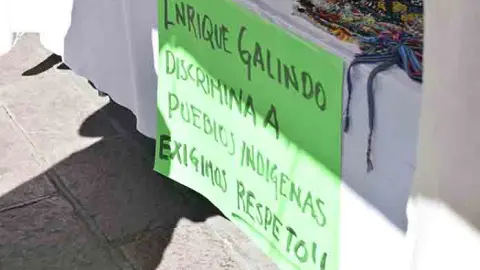 ENRIQUE GALINDO
DISCRIMINA A
PUEBLOS INDIGENAS
EXIGIMOS RESPETO!!